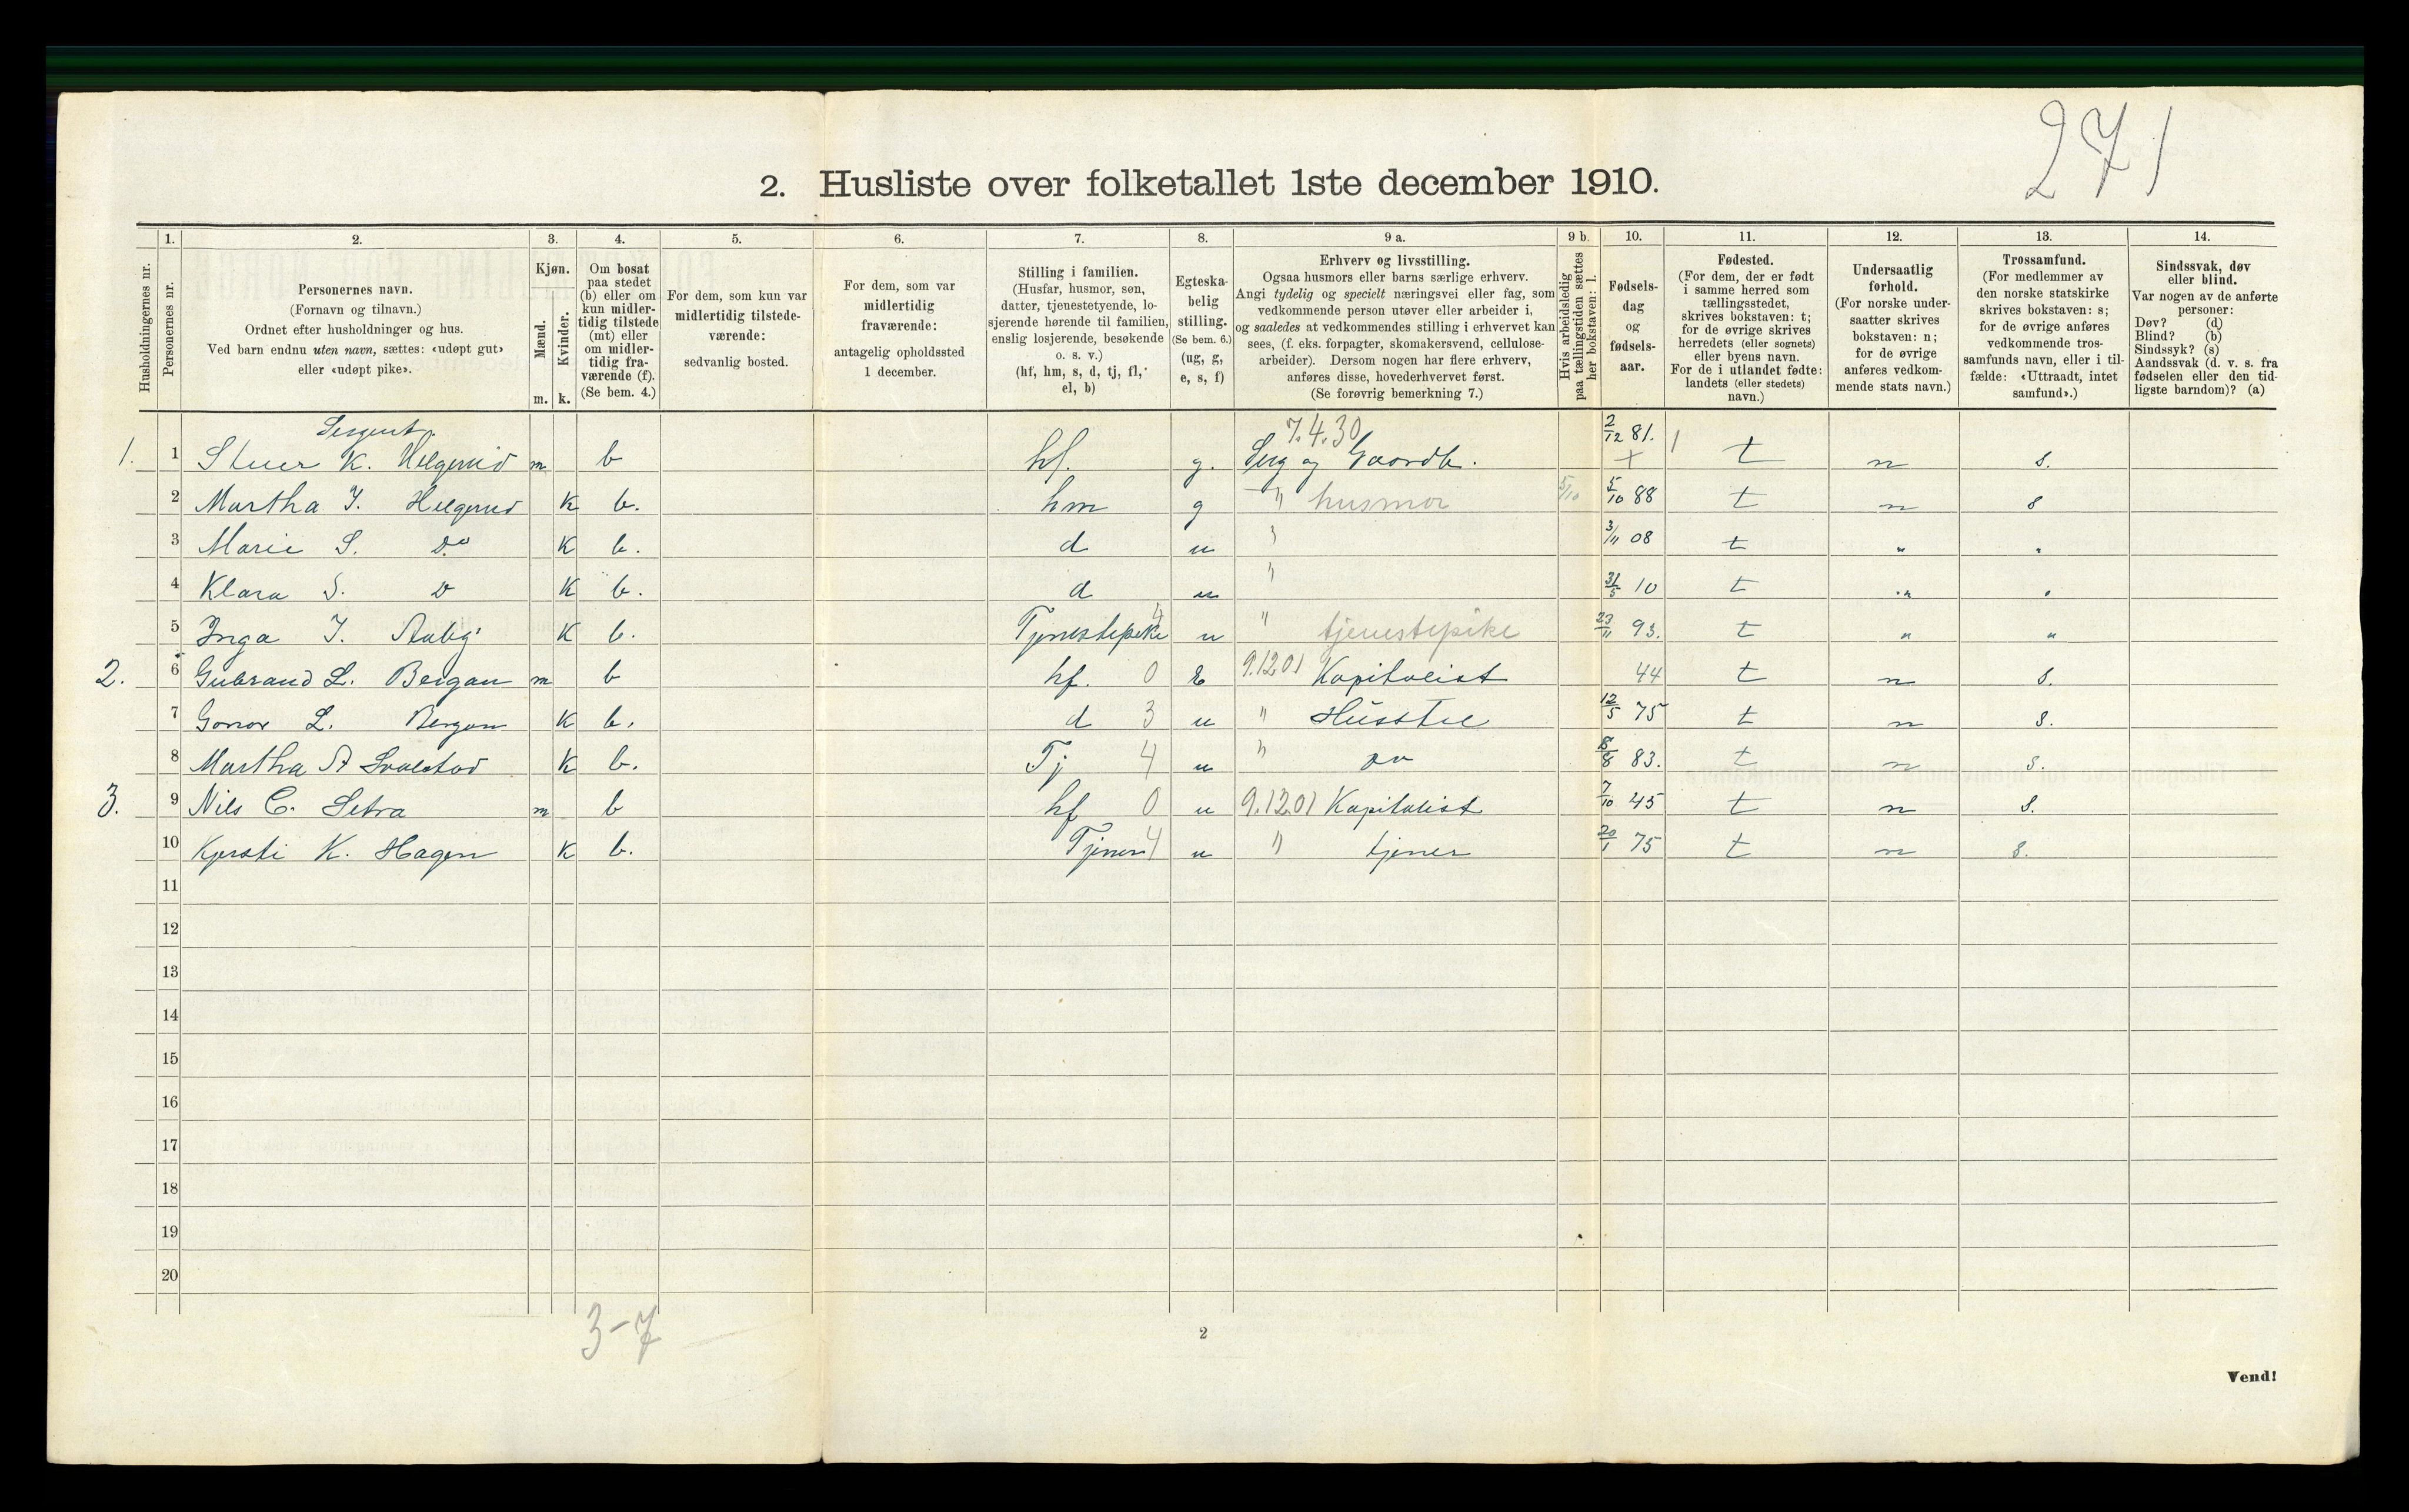 271
2. Husliste over folketallet 1ste december 1910.
Husholdningernes nr.
1. Personernes nr.
2. Personernes navn.
(Fornavn og tilnavn.)
Ordnet efter husholdninger og hus.
Ved barn endnu uten navn, sættes: «udøpt gut»
eller «udøpt pike».
3. Kjøn.
Mænd. m.
Kvinder. k.
4. Om bosat
paa stedet
(b) eller om
kun midler-
tidig tilstede
(mt) eller
om midler-
tidig fra-
værende (f).
(Se bem. 4.)
5. For dem, som kun var
midlertidig tilstede-
værende:
sedvanlig bosted.
6. For dem, som var
midlertidig
fraværende:
antagelig opholdssted
1 december.
7. Stilling i familien.
(Husfar, husmor, søn,
datter, tjenestetyende, lo-
sjerende hørende til familien,
enslig losjerende, besøkende
o. s. v.)
(hf, hm, s, d, tj, fl,
el, b)
8. Egteska-
belig
stilling.
(Se bem. 6.)
(ug, g,
e, s, f)
9 a. Erhverv og livsstilling.
Ogsaa husmors eller barns særlige erhverv.
Angi tydelig og specielt næringsvei eller fag, som
vedkommende person utøver eller arbeider i,
og saaledes at vedkommendes stilling i erhvervet kan
sees, (f. eks. forpagter, skomakersvend, cellulose-
arbeider). Dersom nogen har flere erhverv,
anføres disse, hovederhvervet først.
(Se forøvrig bemerkning 7.)
9 b. Hvis arbeidsledig
paa tællingstiden sættes
her bokstaven: l.
10. Fødsels-
dag
og
fødsels-
aar.
11. Fødested.
(For dem, der er født
i samme herred som
tællingsstedet,
skrives bokstaven: t;
for de øvrige skrives
herredets (eller sognets)
eller byens navn.
For de i utlandet fødte:
landets (eller stedets)
navn.)
12. Undersaatlig
forhold.
(For norske under-
saatter skrives
bokstaven: n;
for de øvrige
anføres vedkom-
mende stats navn.)
13. Trossamfund.
(For medlemmer av
den norske statskirke
skrives bokstaven: s;
for de øvrige anføres
vedkommende tros-
samfunds navn, eller i til-
fælde: «Uttraadt, intet
samfund».)
14. Sindssvak, døv
eller blind.
Var nogen av de anførte
personer:
Døv? (d)
Blind? (b)
Sindssyk? (s)
Aandssvak (d. v. s. fra
fødselen eller den tid-
ligste barndom)? (a)
7.4.30
1. 1 K. m b hf. g. Serg og Gaardb. 2/12 81. t n s.
2 Martha I. k b. hm g " husmor 5/10 5/10 88 t n s
3 Marie S. Do k b. d u " 3/11 08 t " "
4 Klara S. D k b. d u " 31/5 10 t " "
5 Inga I. k b. Tjenestepike 4 u " tjenestepike 23/11 93. t " "
2. 6 Gubrand L. Bergan m b hf. 0 E 9.1201 Kapitalist 44 t n s.
7 L. Bergan k b. d 3 u " Husstel 12/5 75 t n s.
8 Martha k b. Tj 4 u " 83. t n s.
3. 9 Nils C. Setra m b hf 0 u 9.1201 Kapitalist 7/10 45 t n s.
10 Kjersti K. Hagen k b. Tjener 4 u " tjener 20/1 75 t n s.
11
12
13
14
15
16
17
18
19
20
3-7
2
Vend!